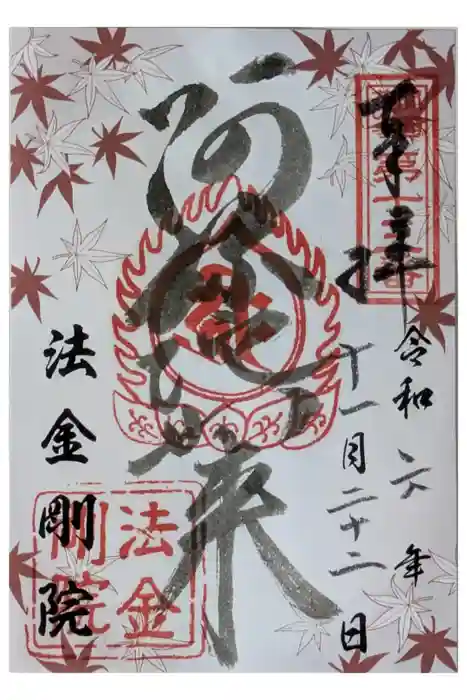 奉拝
令和六年
十一月二十二日
阿弥陀如来
法金剛院
法金
剛院